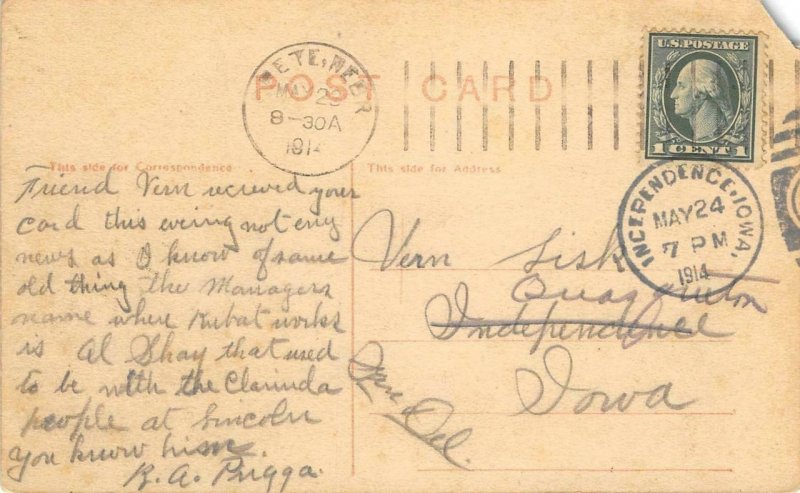 CRETE, NEBR
MAY 23
8-30A
1914
POST CARD
U.S. POSTAGE
1 CENT 1
INDEPENDENCE, IOWA.
MAY 24
7 PM
1914
This side for Correspondence
This side for Address
Friend Vern recieved your
card this evening not eny
news as I know of same
old thing the Managers
name where Kubat works
is Al Shay that used
to be with the Clarinda
people at Lincoln
you know him.
R. A. Prigga.
Vern Sisk
Independence
Iowa
Gen Del.